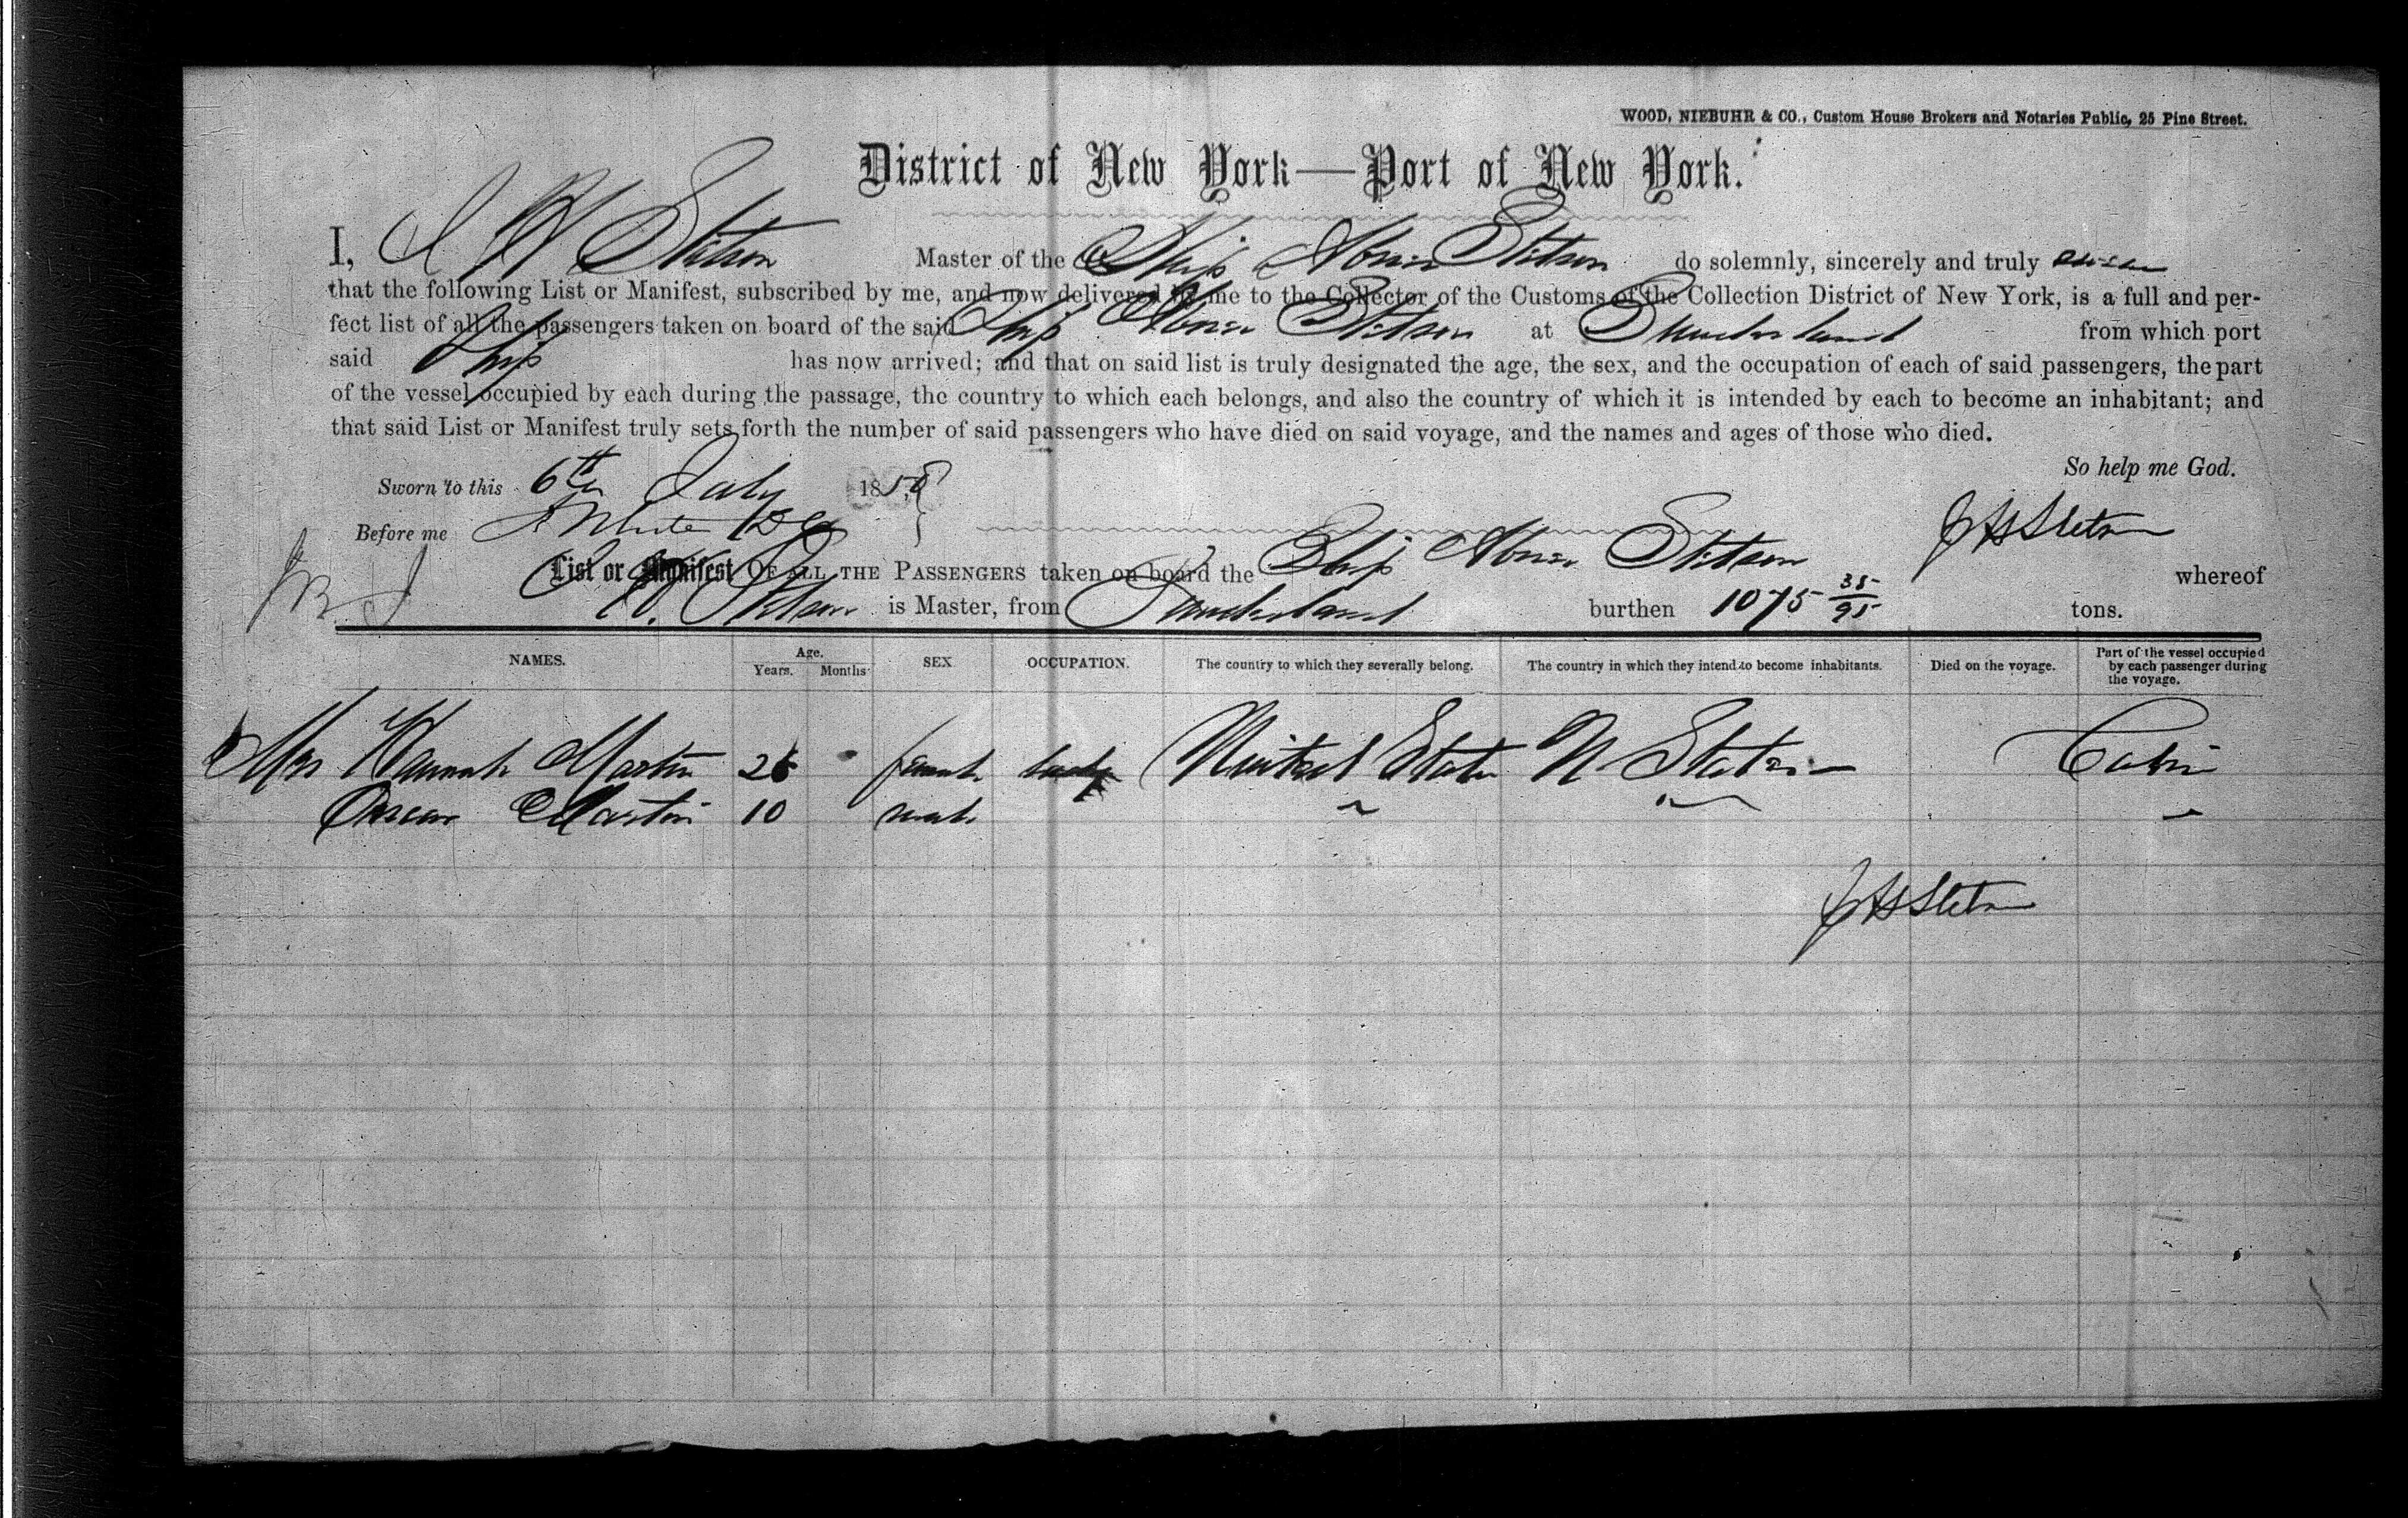 WOOD, NIEBUHR & CO., Custom House Brokers and Notaries Public, 25 Pine Street.
District of New York—Port of New York.
I, J W Stetson Master of the Ship Abner Stetson do solemnly, sincerely and truly swear
that the following List or Manifest, subscribed by me, and now delivered by me to the Collector of the Customs of the Collection District of New York, is a full and per-
fect list of all the passengers taken on board of the said Ship Abner Stetson at Sunderland from which port
said Ship has now arrived; and that on said list is truly designated the age, the sex, and the occupation of each of said passengers, the part
of the vessel occupied by each during the passage, the country to which each belongs, and also the country of which it is intended by each to become an inhabitant; and
that said List or Manifest truly sets forth the number of said passengers who have died on said voyage, and the names and ages of those who died.
So help me God.
Sworn to this 6th July 185
Before me White Stetson
List or Manifest OF ALL THE PASSENGERS taken on board the Ship Abner Stetson whereof
W. Stetson is Master, from Sunderland burthen 1075 35/95 tons.
NAMES. Age. Years. Months SEX OCCUPATION. The country to which they severally belong. The country in which they intend to become inhabitants. Died on the voyage. Part of the vessel occupied by each passenger during the voyage.
Mrs Hannah Martin 26 female lady United States U States Cabin
Oscar Martin 10 male
Stetson